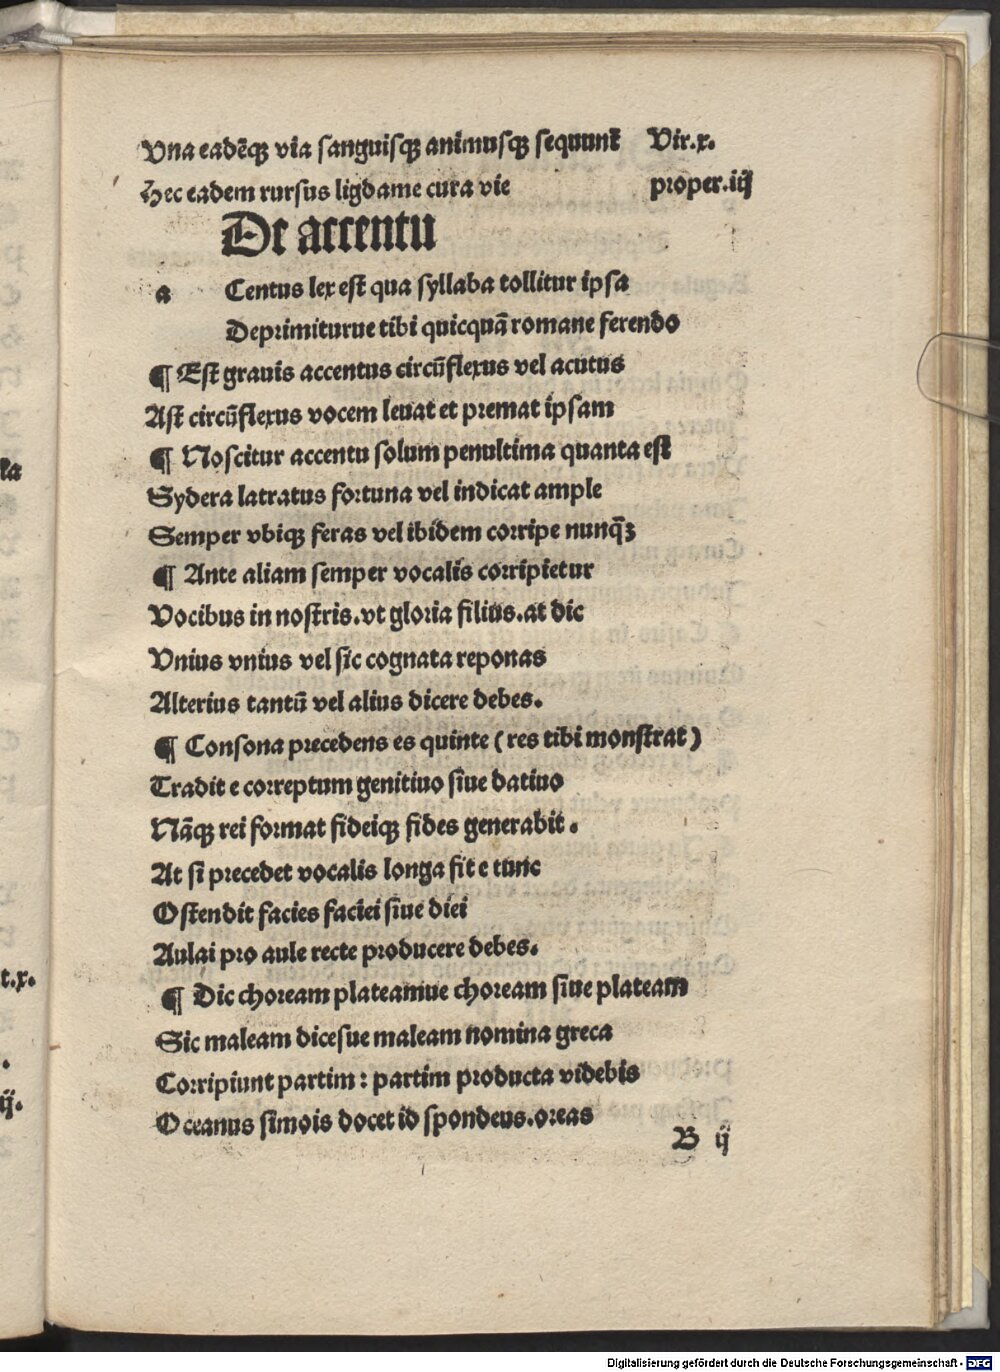 Vna eadēqꝫ via sanguisqꝫ animusqꝫ sequunt᷑ Vir.x.
Hec eadem rursus ligdame cura vie proper.iij
De accentu
a Centus lex est qua syllaba tollitur ipsa
Deprimiturue tibi quicquā romane ferendo
¶ Est grauis accentus circūflexus vel acutus
Ast circūflexus vocem leuat et premat ipsam
¶ Noscitur accentu solum penultima quanta est
Sydera latratus fortuna vel indicat ample
Semper vbiqꝫ feras vel ibidem corripe nunq̄ꝫ
¶ Ante aliam semper vocalis corripietur
Vocibus in nostris.vt gloria filius.at dic
Vnius vnius vel sic cognata reponas
Alterius tantū vel alius dicere debes.
¶ Consona precedens es quinte (res tibi monstrat)
Tradit e correptum genitiuo siue datiuo
Nāqꝫ rei format fideiqꝫ fides generabit.
At si precedet vocalis longa fit e tunc
Ostendit facies faciei siue diei
Aulai pro aule recte producere debes.
¶ Dic choream plateamue choream siue plateam
Sic maleam dicesue maleam nomina greca
Corripiunt partim: partim producta videbis
Oceanus simois docet id spondeus.oreas
B ij
la
t.x.
.
ij.
Digitalisierung gefördert durch die Deutsche Forschungsgemeinschaft - DFG